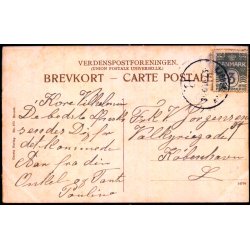 VERDENSPOSTFORENINGEN.
(UNION POSTALE UNIVERSELLE.)
BREVKORT - CARTE POSTALE
DANMARK
Kære Vilhelmin
De bedste Ønsker
sendes Dig for
det kommende
Aar fra din
Onkel og Tante
Pauline
Frk. V. Jørgensen
Valkyriegade
København
L